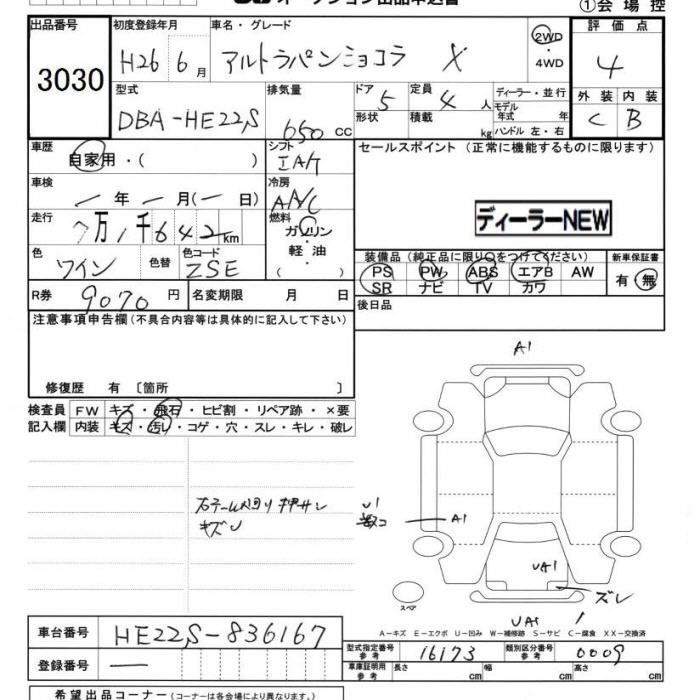 オークション出品申込書
①会場控
出品番号
3030
初度登録年月
H26 6月
車名・グレード
アルトラパンショコラ X
2WD
・4WD
評価点
4
型式
DBA-HE22S
排気量
650 cc
ドア 5
定員 4 人
形状
積載 kg
ディーラー・並行
モデル年式 年
ハンドル 左・右
外装 内装
C B
車歴
自家用・( )
シフト
IAT
セールスポイント(正常に機能するものに限ります)
ディーラーNEW
車検
ー年 ー月(ー日)
冷房
A/C
走行
7万1千642km
燃料
ガソリン
軽・油
( )
色
ワイン
色替
色コード
ZSE
装備品(純正品に限り○をつけてください)
PS PW ABS エアB AW
SR ナビ TV カワ
新車保証書
有・無
R券 9070 円
名変期限 月 日
後日品
注意事項申告欄(不具合内容等は具体的に記入して下さい)
修復歴 有〔箇所 〕
検査員 FW キズ・飛石・ヒビ割・リペア跡・×要
記入欄 内装 キズ・汚レ・コゲ・穴・スレ・キレ・破レ
キズU
A1
U1
A1
UA1
ズレ
UA1
スペア
A―キズ E―エクボ U―凹み W―補修跡 S―サビ C―腐食 XX―交換済
車台番号 HE22S-836167
登録番号 ―
型式指定番号 参考 16173
類別区分番号 参考 0009
車庫証明用 参考 長さ cm 幅 cm 高さ cm
希望出品コーナー(コーナーは各会場により異なります)